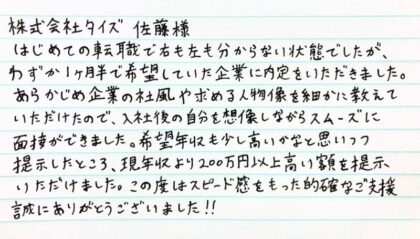 株式会社タイズ 佐藤様
はじめての転職で右も左も分からない状態でしたが、
わずか1ヶ月半で希望していた企業に内定をいただきました。
あらかじめ企業の社風や求める人物像を細かに教えて
いただけたので、入社後の自分を想像しながらスムーズに
面接ができました。希望年収も少し高いかなと思いつつ
提示したところ、現年収より200万円以上高い額を提示
いただけました。この度はスピード感をもった的確なご支援
誠にありがとうございました!!